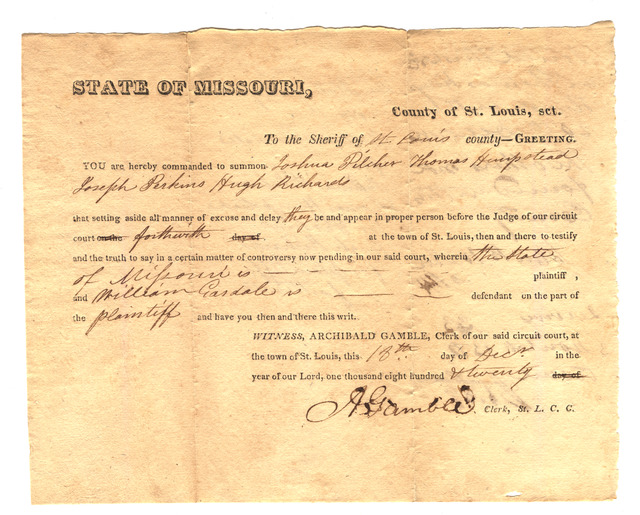 STATE OF MISSOURI,
County of St. Louis, sct.
To the Sheriff of St Louis county—GREETING.
YOU are hereby commanded to summon Joshua Pilcher Thomas Hempstead
Joseph Perkins Hugh Richards
that setting aside all manner of excuse and delay they be and appear in proper person before the Judge of our circuit
court on the forthwith day of at the town of St. Louis, then and there to testify
and the truth to say in a certain matter of controversy now pending in our said court, wherein the State
of Missouri is — — — plaintiff ,
and William Gasdale is — — defendant on the part of
the plaintiff and have you then and there this writ.
WITNESS, ARCHIBALD GAMBLE, Clerk of our said circuit court, at
the town of St. Louis, this 18th day of Decr in the
year of our Lord, one thousand eight hundred & twenty day of
A Gamble Clerk, St. L. C. C.